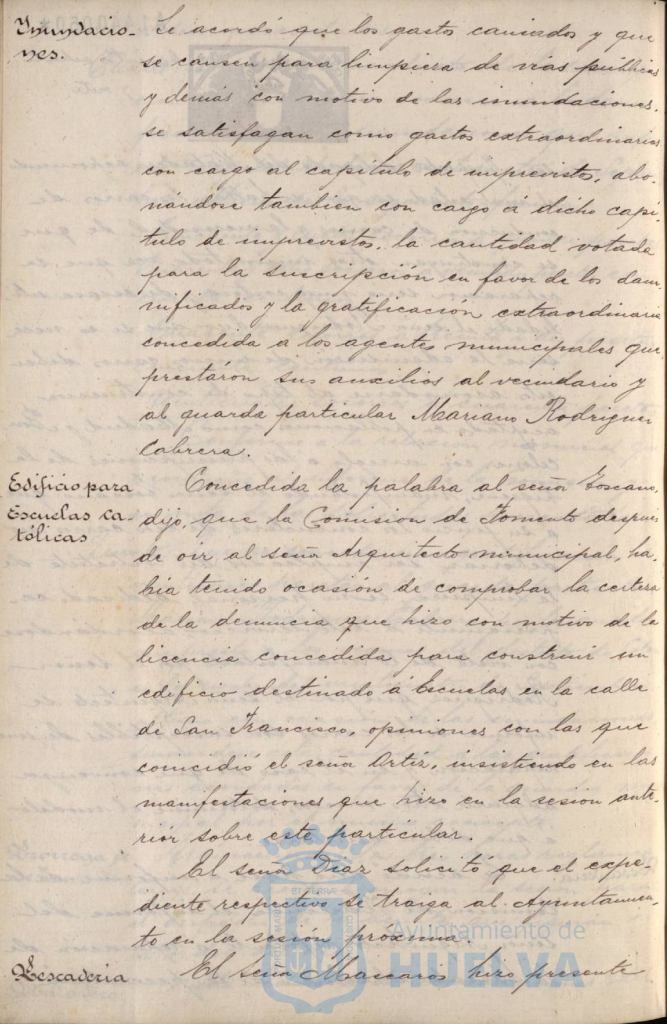 Inundacio-
nes.
Se acordó que los gastos causados y que
se causen para limpieza de vias públicas
y demás con motivo de las inundaciones,
se satisfagan como gastos extraordinarios
con cargo al capitulo de imprevistos, abo-
nándose tambien con cargo á dicho capí-
tulo de imprevistos, la cantidad votada
para la suscripción en favor de los dam-
nificados y la gratificación extraordinaria
concedida á los agentes municipales que
prestáron sus auxilios al vecindario y
al guarda particular Mariano Rodriguez
Cabrera.
Edificio para
Escuelas ca-
tólicas
Concedida la palabra al señor Toscano,
dijo, que la Comision de Fomento despues
de oir al señor Arquitecto municipal, ha-
bia tenido ocasión de comprobar la certeza
de la denuncia que hizo con motivo de la
licencia concedida para construir un
edificio destinado á Escuelas en la calle
de San Francisco, opiniones con las que
coincidió el señor Ortiz, insistiendo en las
manifestaciones que hizo en la sesión ante-
riór sobre este particular.
El señor Diaz solicitó que el expe-
diente respectivo se traiga al Ayuntamien-
to en la sesión próxima.
Pescaderia
El señor Mascarós hizo presente
Ayuntamiento de
HUELVA